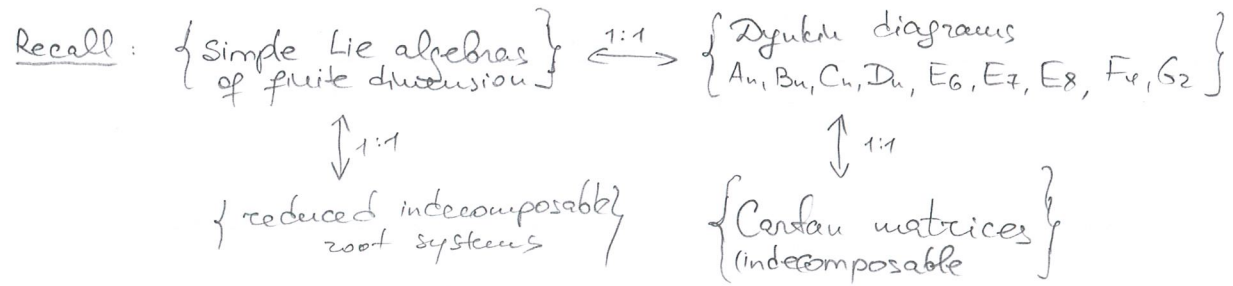 Recall: {Simple Lie algebras of finite dimension} 1:1 ⟷ {Dynkin diagrams
An, Bn, Cn, Dn, E6, E7, E8, F4, G2}
↕ 1:1 ↕ 1:1
{reduced indecomposable root systems} {Cartan matrices
(indecomposable}